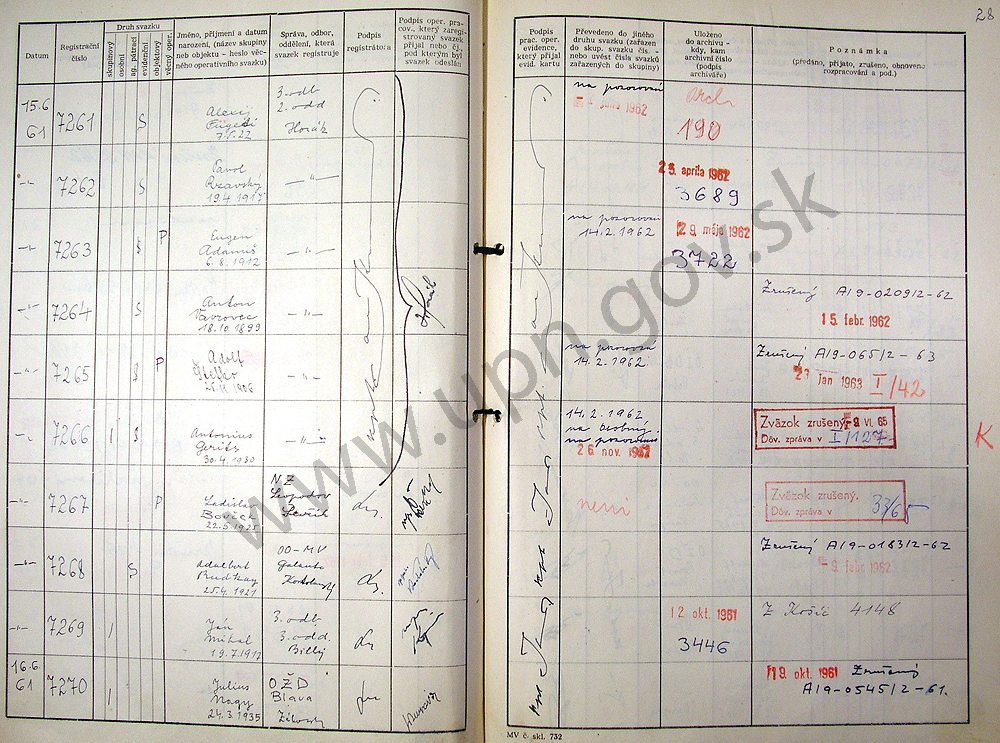 28
Datum
Registrační číslo
Druh svazku
skupinový
osobní
ag. pátrací
evidenční
objektový
věcný oper.
Jméno, příjmení a datum
narození, (název skupiny
neb objektu - heslo věc-
ného operativního svazku)
Správa, odbor,
oddělení, která
svazek registruje
Podpis
registrátora
Podpis oper. pra-
cov., který zaregi-
strovaný svazek
přijal nebo čj.,
pod kterým byl
svazek odeslán
Podpis
prac. oper.
evidence,
který přijal
evid. kartu
Převedeno do jiného
druhu svazku (zařazen
do skup. svazku čís. -
nebo uvést čísla svazků
zařazených do skupiny)
Uloženo
do archivu -
kdy, kam
archivní číslo
(podpis
archiváře)
Poznámka
(předáno, přijato, zrušeno, obnoveno
rozpracování a pod.)
15.6
61
7261
S
Alexej
7.5.22
3. odb
2. odd
Horák
na pozorovaní
1962
Arch
190
-"-
7262
S
Pavol
19.4.1917
-"-
25. apríla 1962
3689
-"-
7263
S
P
Eugen
Adamuš
6.8.1912
-"-
na pozorovaní
14.2.1962
29. mája 1962
3722
-"-
7264
S
Anton
Vavrovec
18.10.1899
-"-
Zrušený A/9-0209/2-62
15. febr. 1962
-"-
7265
S
P
Adolf
1906
-"-
na pozorova
14.2.1962
Zrušený A/9-065/2-63
23 jan 1963 I/42
-"-
7266
I
S
Antonius
Gerits
30.4.1930
-"-
14.2.1962
na osobný
na pozorovanie
26. nov. 1962
Zväzok zrušený. -9. VI. 65
Dôv. zpráva v I/127-
K
-"-
7267
P
Ladislav
Bovček
22.5.1925
NZ
Leopoldov
není
Zväzok zrušený.
Dôv. zpráva v 33/65
-"-
7268
S
Adalbert
Rudkay
25.4.1921
OO-MV
Galanta
Zrušený A/9-0183/2-62
-9. febr. 1962
-"-
7269
I
Ján
Mihal
19.7.1917
3. odb
3. odd.
Billý
12. okt. 1961
3446
Z Košíc 4148
16.6
61
7270
I
Julius
Nagy
24.3.1935
OŽD
Blava
19. okt. 1961 Zrušený
A/9-0545/2-61.
MV č. skl. 732
www.upn.gov.sk